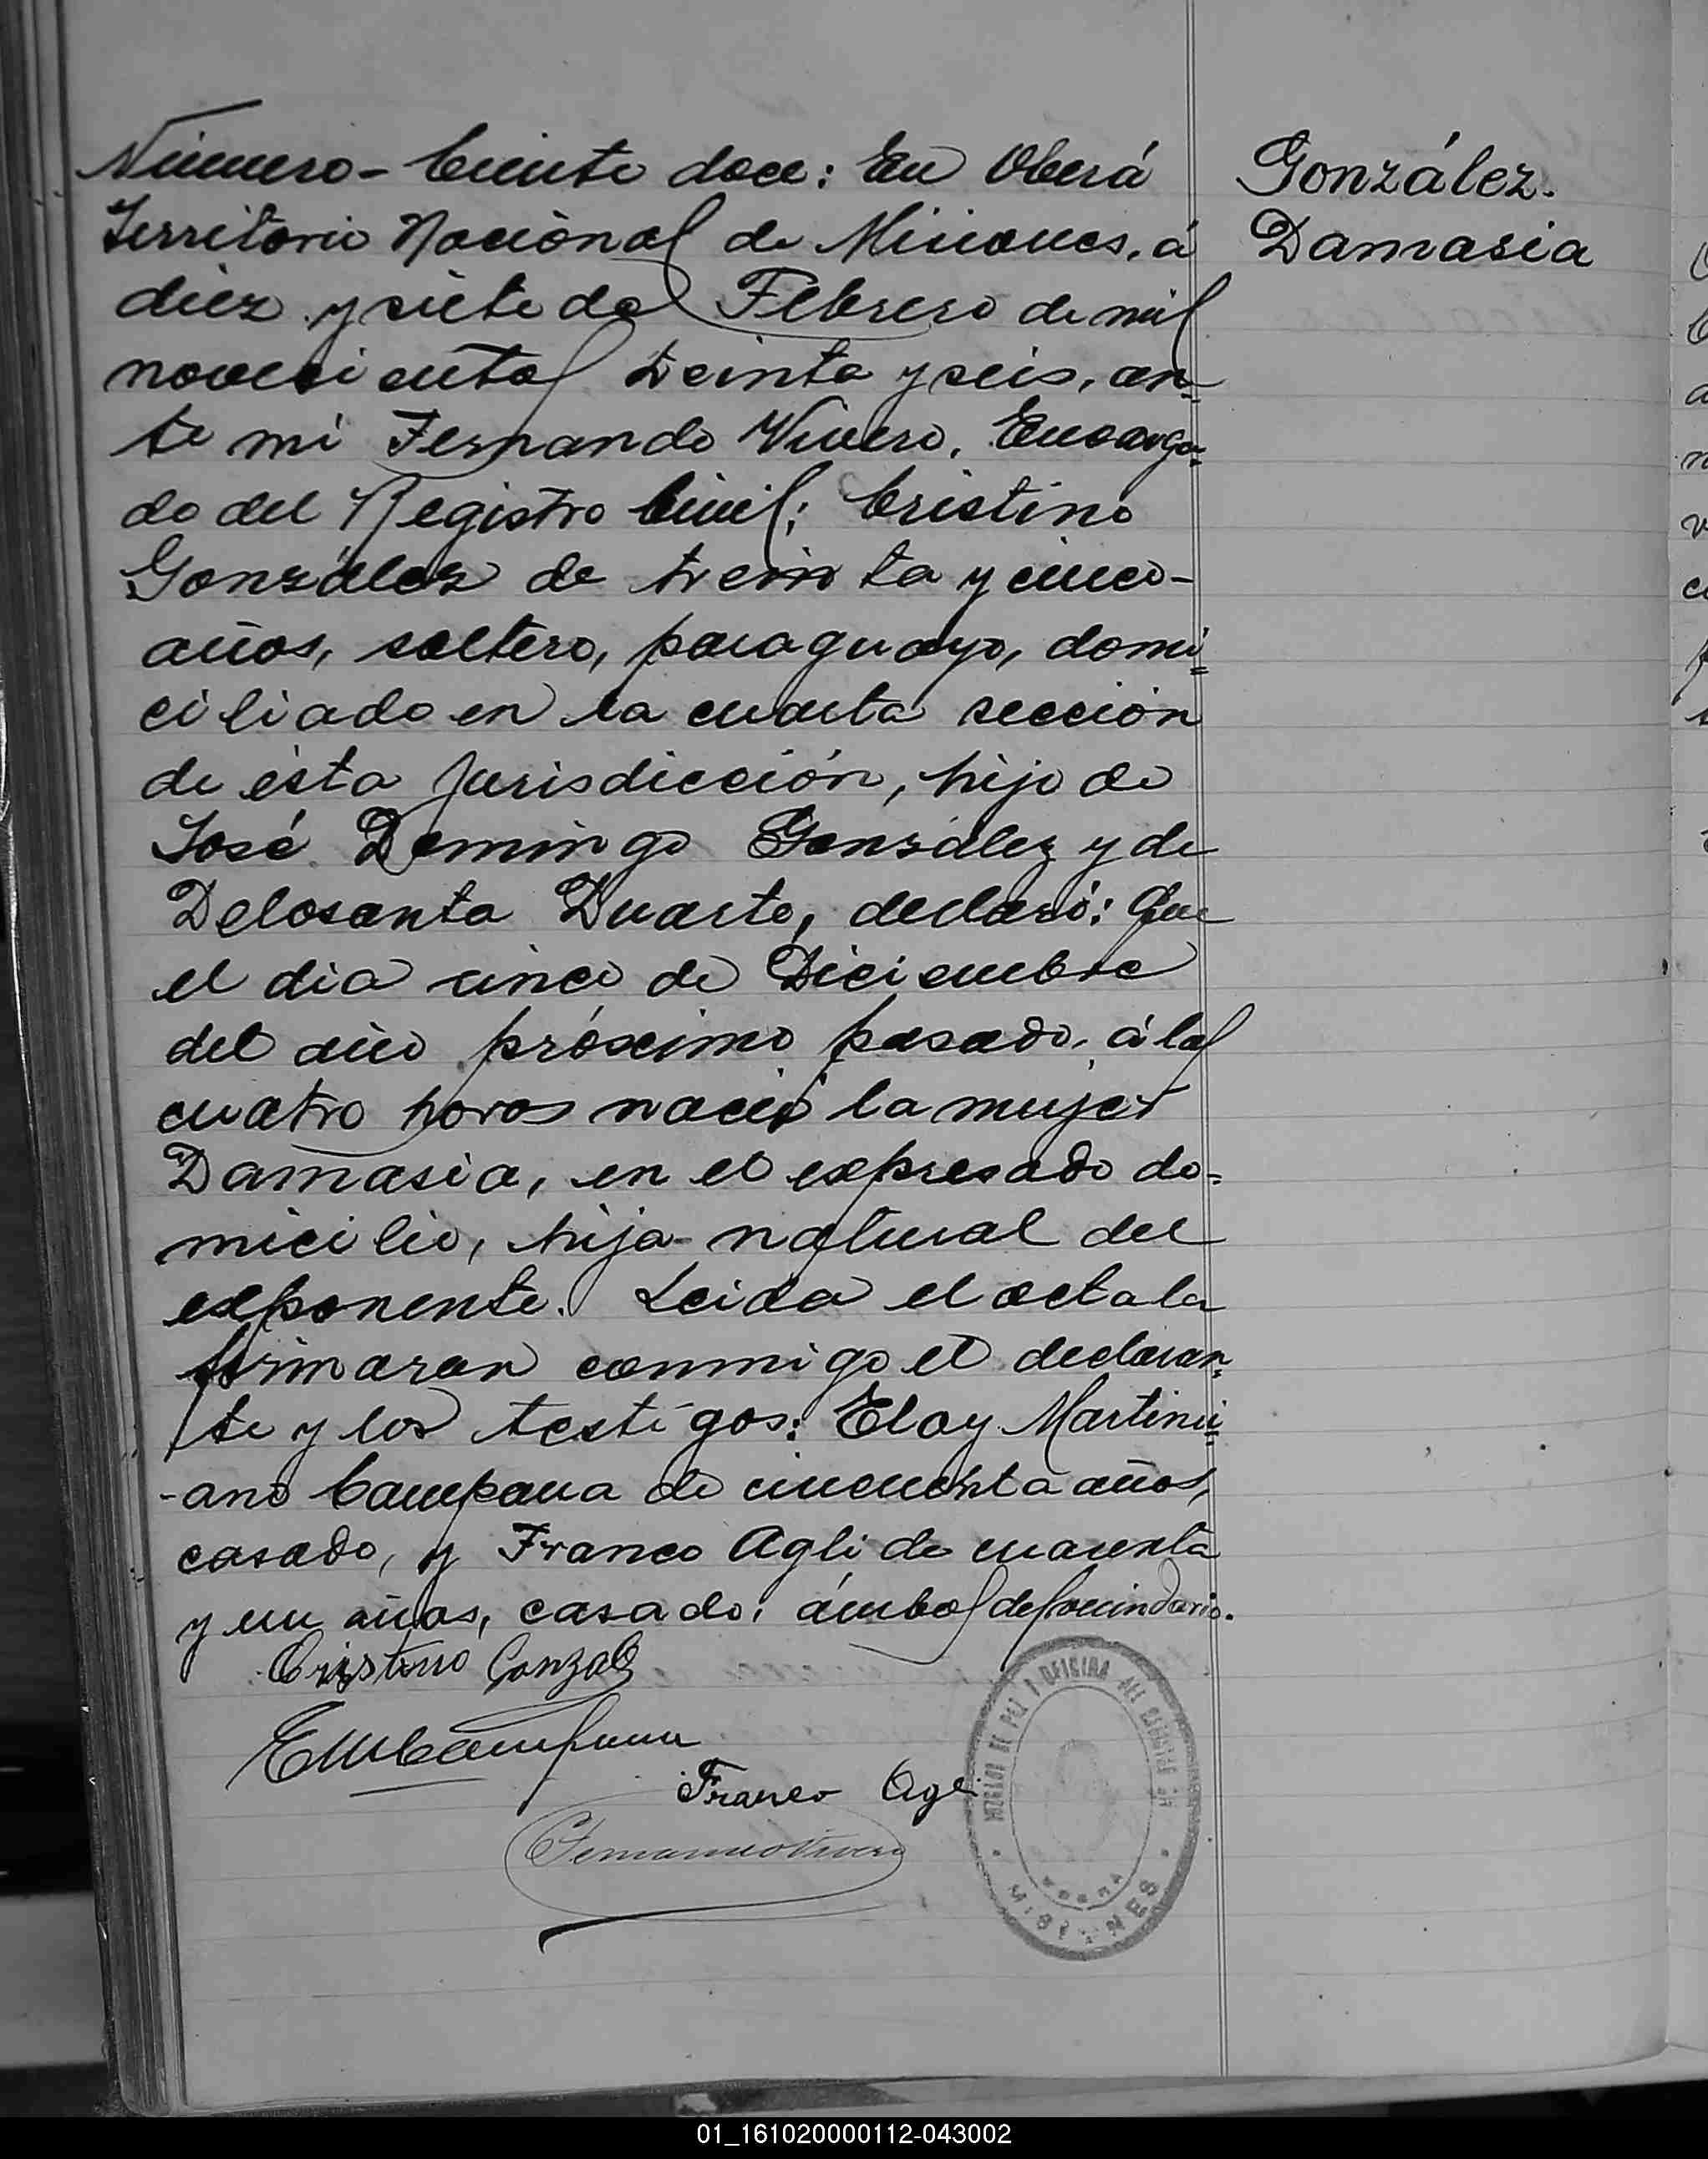 Número - Ciento doce: En Oberá
Territorio Nacional de Misiones, á
diez y siete de Febrero de mil
novecientos treinta y seis, an=
te mi Fernando Vivero, Encarga=
do del Registro Civil; Cristino
González de treinta y cinco-
años, soltero, paraguayo, domi=
ciliado en la cuarta sección
de ésta Jurisdicción, hijo de
José Domingo González y de
Delosanta Duarte, declaró: Que
el dia cinco de Diciembre
del año próximo pasado, á las
cuatro horas nació la mujer
Damasia, en el expresado do=
micilio, hija natural del
exponente. Leida el acta la
firmaron conmigo el declaran=
te y los testigos: Eloy Martini=
-ano Campana de cincuenta años,
casado, y Franco Agli de cuarenta
y un años, casado, ámbos de vecindario.
González.
Damasia
Cristino Gonzalez
EMCampana
Franco Agli
Fernando Vivero
JUZGADO DE PAZ Y OFICINA DEL REGISTRO CIVIL
MISIONES
01_161020000112-043002